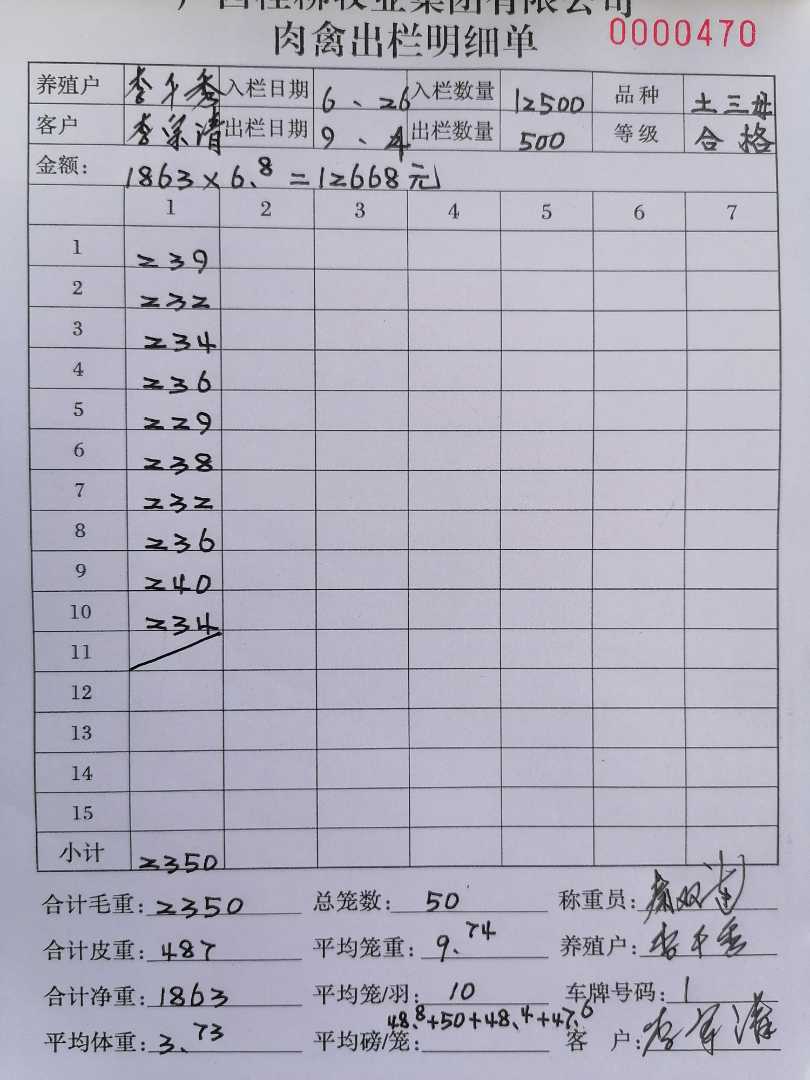 广西桂柳牧业集团有限公司
肉禽出栏明细单 0000470
养殖户 李千秀 入栏日期 6、26 入栏数量 12500 品种 土三母
客户 李军清 出栏日期 9、4 出栏数量 500 等级 合格
金额: 1863×6.8=12668元
1 2 3 4 5 6 7
1 239
2 232
3 234
4 236
5 229
6 238
7 232
8 236
9 240
10 234
11
12
13
14
15
小计 2350
合计毛重: 2350 总笼数: 50 称重员:
合计皮重: 487 平均笼重: 9.74 养殖户: 李千秀
合计净重: 1863 平均笼/羽: 10 车牌号码: 1
48.8+50+48.4+47.6
平均体重: 3.73 平均磅/笼: 客户: 李军清